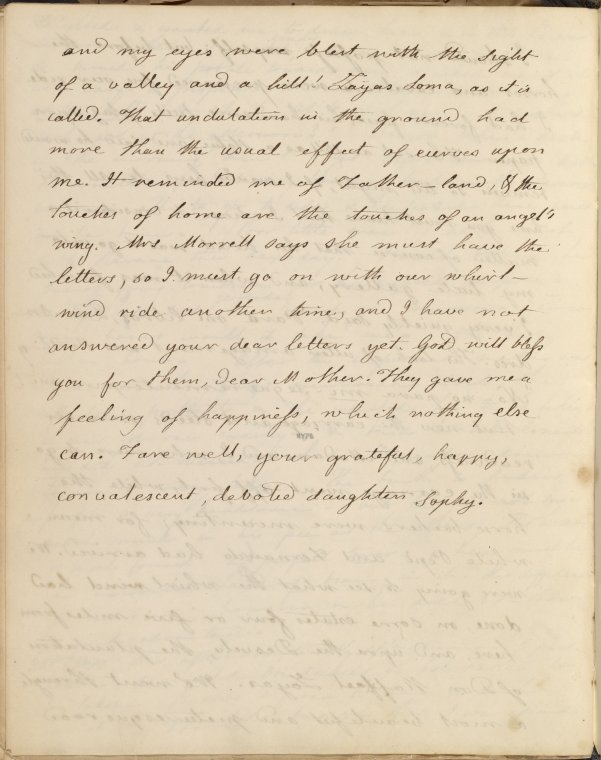 and my eyes were blest with the sight
of a valley and a hill! Zayas Loma, as it is
called. That undulation in the ground had
more than the usual effect of curves upon
me. It reminded me of Father-land, & the
touches of home are the touches of an angel's
wing. Mrs Morrell says she must have the
letters, so I must go on with our whirl-
wind ride another time, and I have not
answered your dear letters yet. God will bless
you for them, dear Mother. They gave me a
feeling of happiness, which nothing else
can. Fare well, your grateful, happy,
convalescent, devoted daughter Sophy.